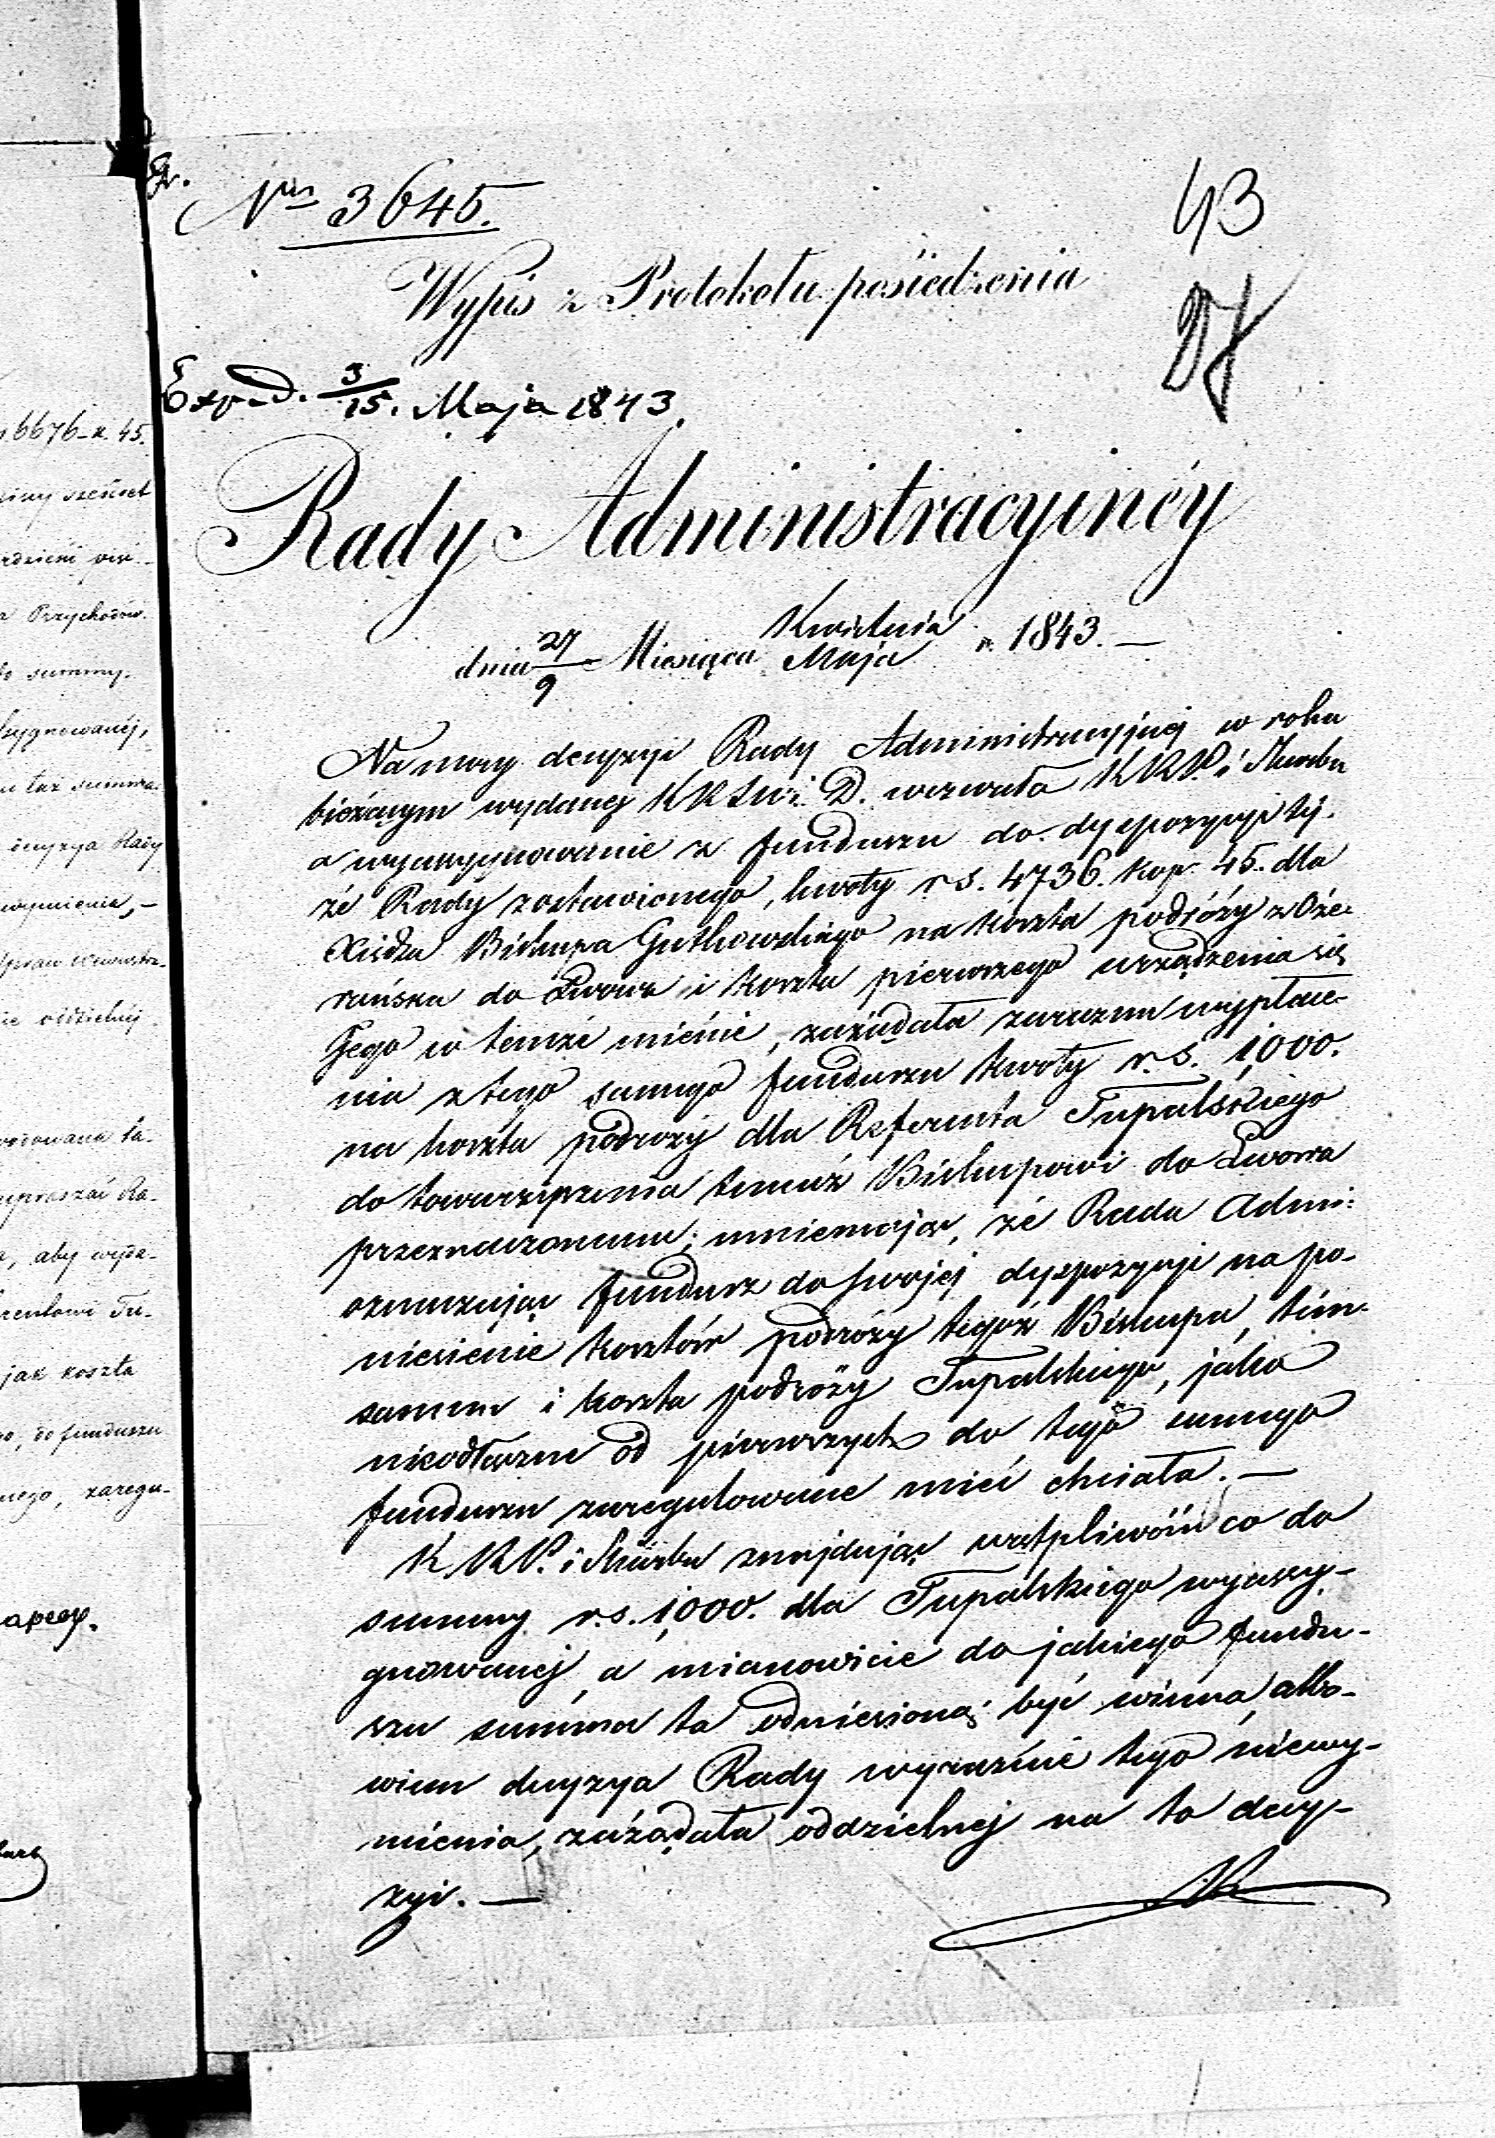 Nro 3645.
43
27
Wypis z Protokołu posiedzenia
Exped. 3/15. Maja 1843.
Rady Administracyinéy
dnia 27/9 Miesiąca Kwietnia/Maja r. 1843. —
Na mocy decyzyi Rady Administracyjnej w roku
bieżącym wydanej KRSW i D. wezwała KRP. i Skarbu
o wyassygnowanie z funduszu do dyspozycyi tej-
że Rady zostawionego, kwoty rs. 4736. kop. 45. dla
Xiędza Biskupa Gutkowskiego na koszta podróży z Oże-
rańska do Lwowa i koszta pierwszego urządzenia się
Jego w temże mieście, zażądała zarazem wypłace-
nia z tego samego funduszu kwoty r.s. 1,000.
na koszta podróży dla Referenta Tupalskiego
do towarzyszenia temuż Biskupowi do Lwowa
przeznaczonemu; mniemając, że Rada Admi:
oznaczając fundusz do swojej dyspozycyi na po-
niesienie kosztów podróży tegoż Biskupa, tém-
samem i koszta podróży Tupalskiego, jako
nieodłączne od pierwszych do tego samego
funduszu zaregulowane mieć chciała. —
KRP. i Skarbu znajdując wątpliwość co do
summy rs. 1,000. dla Tupalskiego wyassy-
gnowanej, a mianowicie do jakiego fundu-
szu summa ta odniesioną być winna, albo-
wiem decyzya Rady wyraźnie tego niewy-
mienia, zażądała oddzielnej na to decy-
zyi. —
6676 k. 45.
sześćset
Przychodów
summy.
taż summa
decyzya Rady
oddzielnéj
upraszać Ra-
aby wyda-
jak koszta
do funduszu
zaregu-